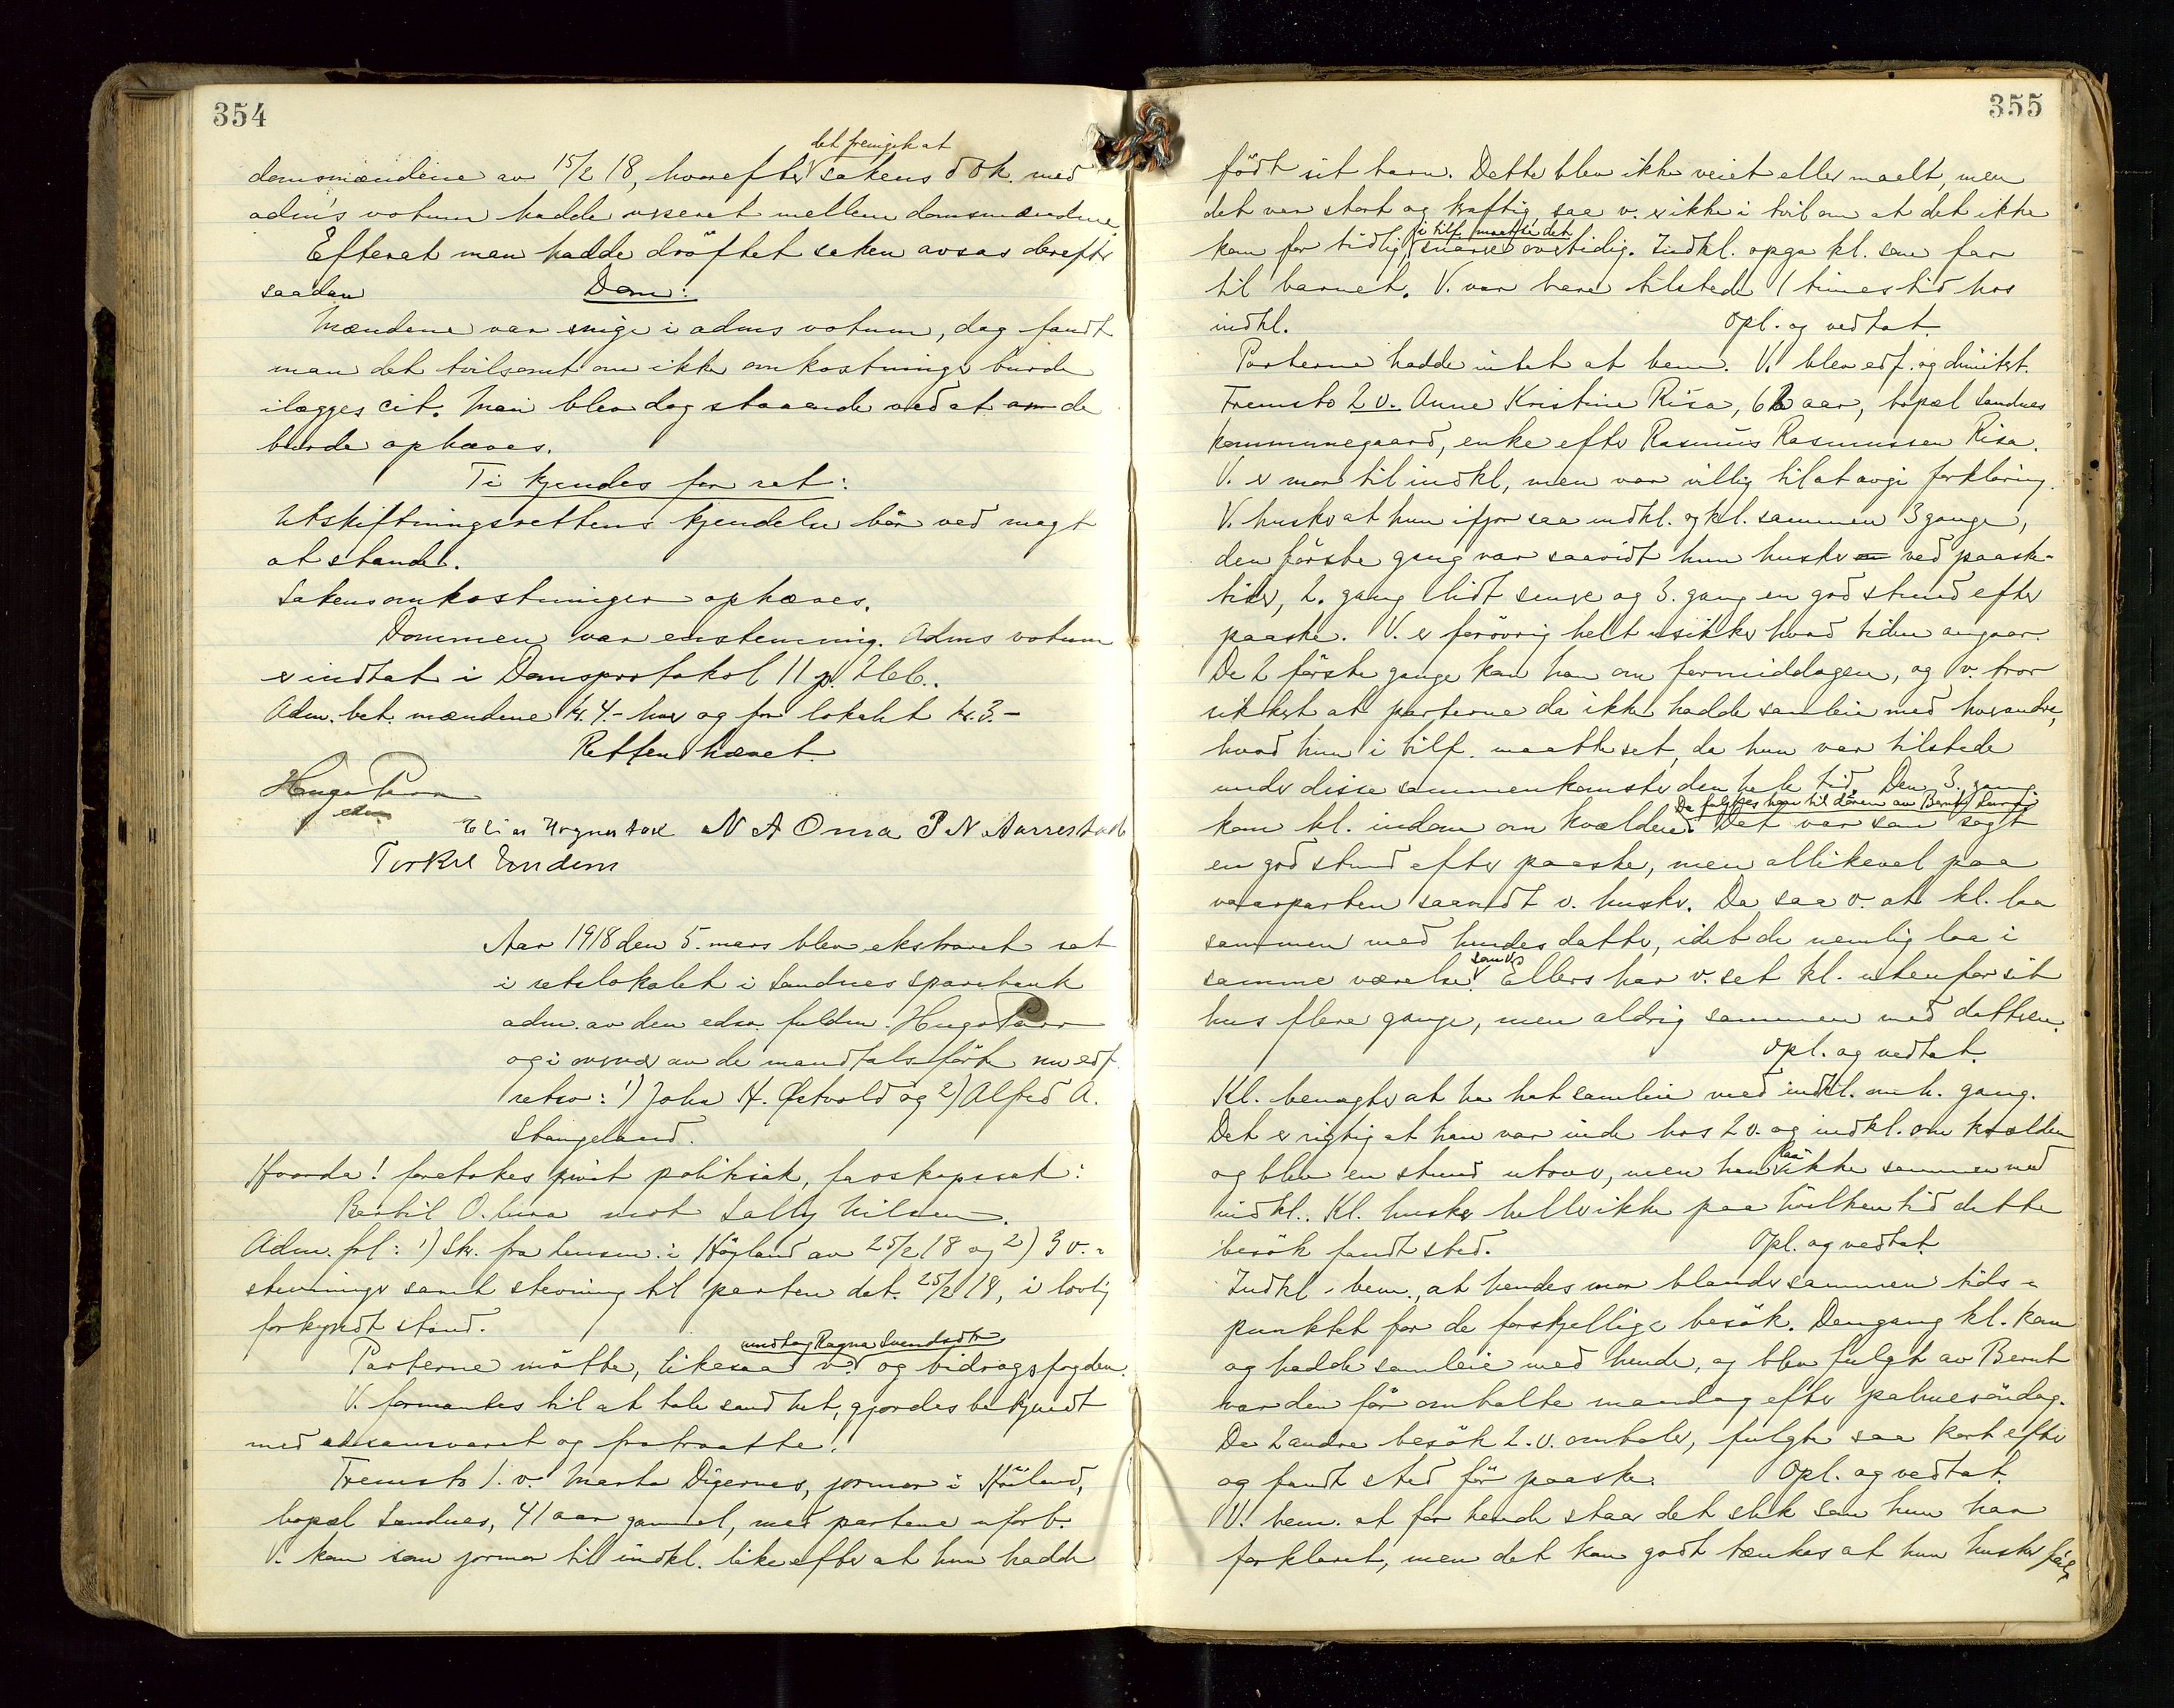 354
det fremgik at
domsmændene av 15/2 18, hvorefter sakens dok. med
adm's votum hadde versert mellem domsmændene
Efterat man hadde dröftet saken avsas derefter
saadan Dom:
Mændene var enige i adms votum, dog fandt
man det tvilsomt om ikke omkostninger burde
ilægges cit. Man blev dog staaende ved at de
burde ophæves.
Ti kjendes for ret:
Utskiftningsrettens kjendelse bör ved magt
at stande.
Sakensomkostninger ophæves.
Dommen var enstemmig. Adms votum
er indtat i Domsprotokol 11 p. 266.
Adm. bet. mændene kr. 4.- hver og for lokalet kr. 3.-
Retten hævet.
Hugo Parr
edsv.
Elias Hognestad N A Oma P N Aarrestad
Torkel Undem
Aar 1918 den 5. mars blev ekstraret sat
i retslokalet i Sandnes Sparebank
adm. av den edsv. fuldm. Hugo Parr
og i overvær av de mandtalsförte nu edf.
retsv: 1) John H. Østvold og 2) Alfred A.
Stangeland.
Hvorda! foretokes privat politisak, farskapssak:
Bertil O. Lura mot Sally Nilsen.
Adm. frl: 1) Skr. fra lensm. i Høyland av 25/2 18 og 2) 3 v.-
stevninger samt stevning til parten dat. 25/2 18, i lovlig
forkyndt stand.
undtag Ragna Svendsdtr
Parterne mötte, likesaa v. og bidragsfogden.
V. formantes til at tale sandhet, gjordes bekjendt
med edsansvaret og fratraatte.
Fremsto 1. v. Marta Digernes, jormor i Höiland,
bopæl Sandnes, 41 aar gammel, med partene uforb.
V. kom som jormor til indkl. like efter at hun hadde
355
födt sit barn. Dette blev ikke veiet eller maalt, men
det var stort og kraftig, saa v. er ikke i tvil om at det ikke
i tilf. maatte det
kom for tidlig, snarere overtidig. Indkl. opga kl. som far
til barnet. V. var bare tilstede 1 times tid hos
indkl. Opl. og vedtat.
Parterne hadde intet at bem. V. blev edf. og dimitert.
Fremsto 2 v. Anne Kristine Risa, 62 aar, bopæl Sandnes
kommunegaard, enke efter Rasmus Rasmussen Risa.
V. er mor til indkl, men var villig til at avgi forklaring.
V. husker at hun ifjor saa indkl. og kl. sammen 3 gange,
den förste gang var saavidt hun husker ved paaske-
tider, 2. gang lidt senere og 3. gang en god stund efter
paaske. V. er forövrig helt usikker hvad tiden angaar.
De 2 förste gange kom han om formiddagen, og v. tror
sikkert at parterne da ikke hadde samleie med hverandre,
hvad hun i tilf. maatte set, da hun var tilstede
under disse sammenkomster den hele tid. Den 3. gang
Da fulgtes han til dören av Bernt Lura
kom kl. indom om kvælden. Det var som sagt
en god stund efter paaske, men allikevel paa
vaarparten saavidt v. husker. Da saa v. at kl. laa
sammen med hendes datter, idet de nemlig laa i
som v.
samme værelse. Ellers har v. set kl. utenfor sit
hus flere gange, men aldrig sammen med datteren.
Opl. og vedtat.
Kl. benegter at ha hat samleie med indkl. om h. gang.
Det er rigtig at han var inde hos 2 v. og indkl. om kvælden
laa
og blev en stund utover, men han ikke sammen med
indkl. Kl. husker heller ikke paa hvilken tid dette
besök fandt sted. Opl. og vedtat.
Indkl. bem., at hendes mor blander sammen tids-
punktet for de forskjellige besök. Dengang kl. kom
og hadde samleie med hende, og blev fulgt av Bernt
var den för omtalte mandag efter palmesöndag.
De 2 andre besök 2. v. omtaler, fulgte saa kort efter
og fandt sted för paaske. Opl. og vedtat.
V. bem. at for hende staar det slik som hun har
forklaret, men det kan godt tænkes at hun husker feil,